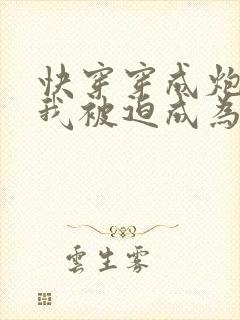 快穿穿成炮
我被迫成為
雲生雾